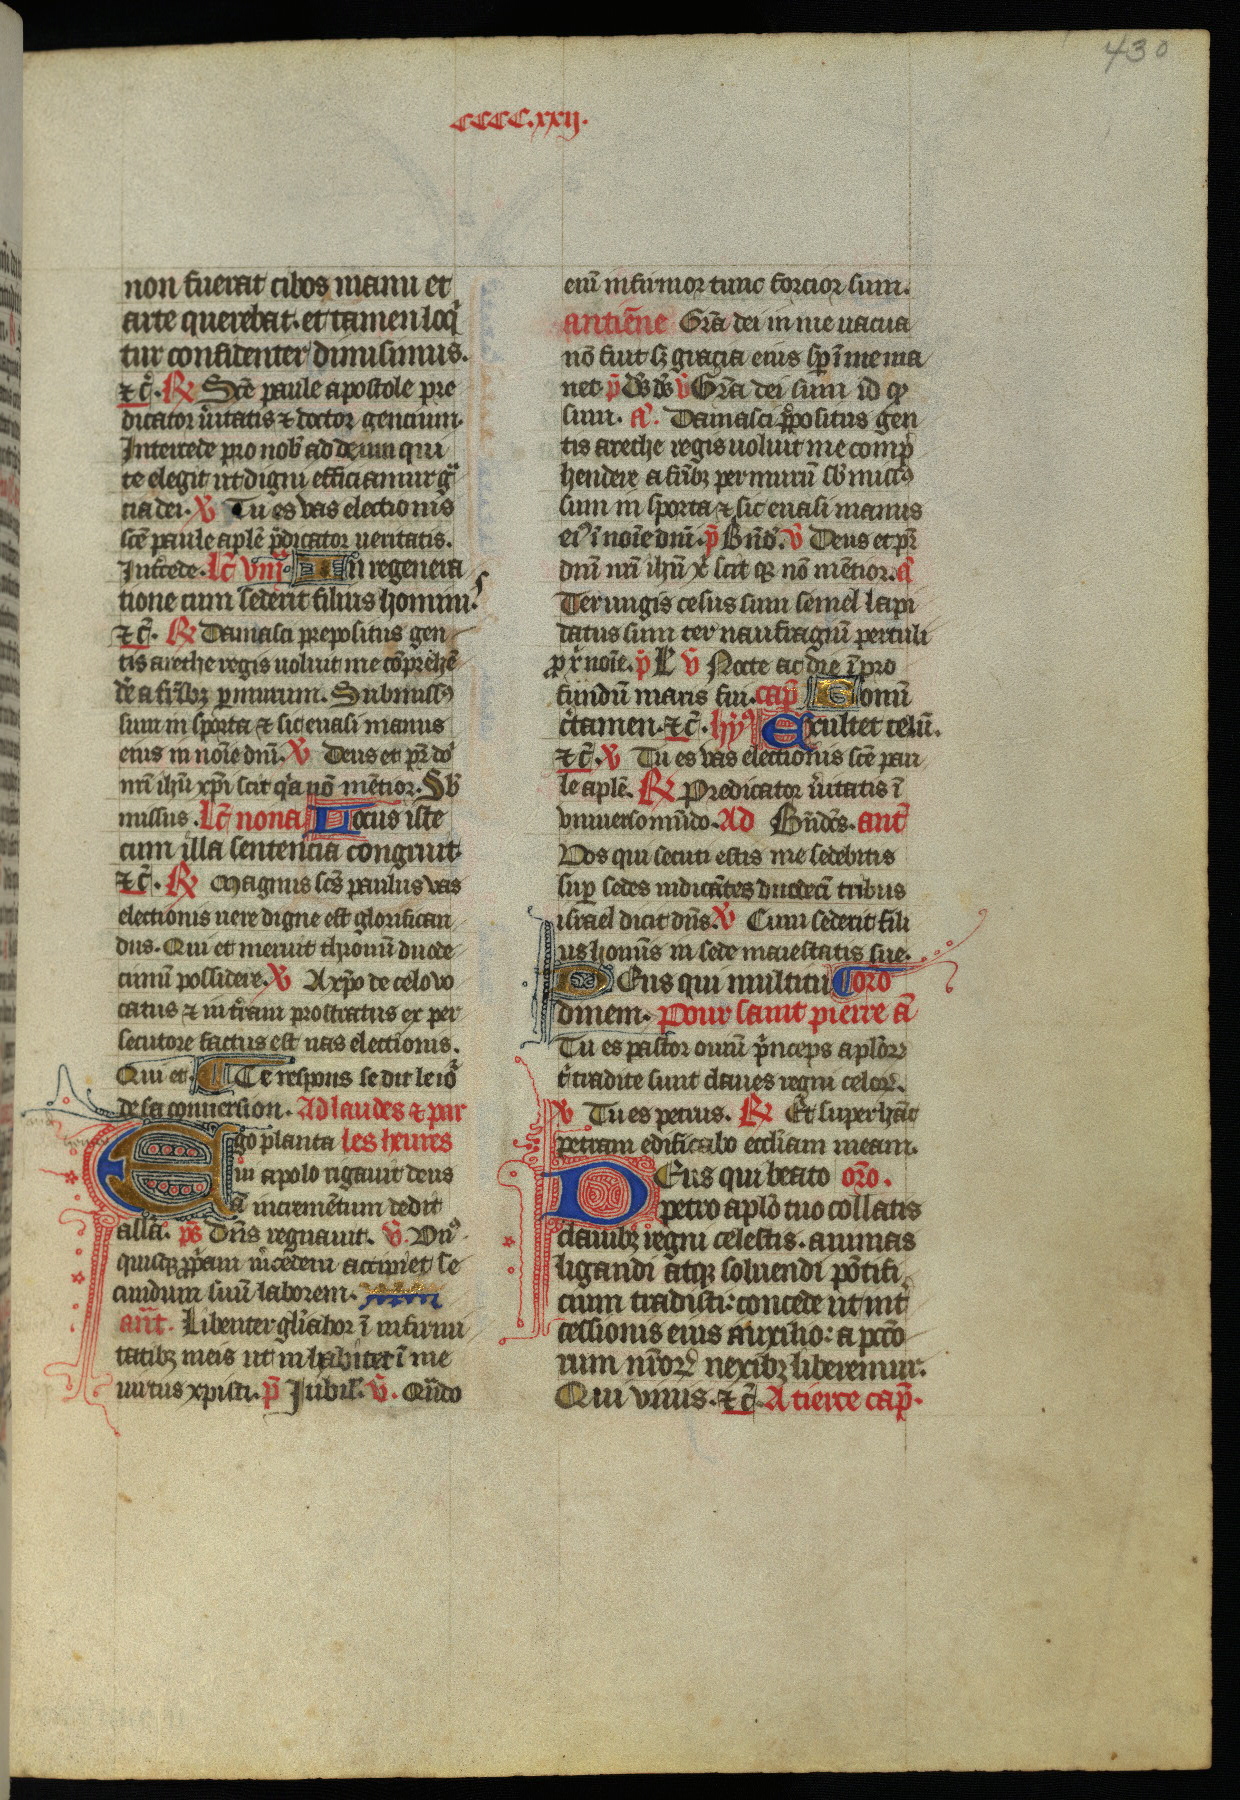 430
cccc.xxij.
non fuerat cibos manu et
arte querebat. et tamen loq̄
tur confidenter dimisimus.
⁊ c̄. R̸ Sc̄e paule apostole pre
dicator ūitatis ⁊ doctor gencium.
Intercede pro nob̄ ad deum qui
te elegit ut digni efficiamur gͣ
cia dei. V̸ Tu es vas electionis
sc̄e paule apl̄e p̄dicator ueritatis.
Int̄cede. Lc̄ viiiͣ In regenera
tione cum sederit filius homini᷒
⁊ c̄. R̸ Damasci prepositus gen
tis arethe regis uoluit me cōprehē
dēe a fr̄ibꝫ p murum. Submissꝰ
sum in sporta ⁊ sic euasi manus
eius in noīe dn̄i. V̸ Deus et pr̄ dn̄i
nr̄i ih̄u xp̄i scit qͥa nō mētior. Sb̄
missus. Lc̄ nona Locus iste
cum illa sentencia congruit.
⁊ c̄. R̸ Magnus sc̄s paulus vas
electionis uere digne est glorifican
dus. Qui et meruit thronū duode
cimū possidere. V̸ A xp̄o de celo vo
catus ⁊ in t̄ram prostratus ex per
secutore factus est uas electionis.
Qui et. Te respons se dit le io᷒
de sa conuersion. Ad laudes ⁊ par
Ego plantaui les heures
apolo rigauit deus
aū incremētum dedit
all̄a. ps̄ Dn̄s regnauit. V̄. Vnꝰ
quisqꝫ pp̄am m̄cedem accipiet se
cundum suū laborem.
ant̄. Libenter gl̄iabor ī infirmi
tatibꝫ meis ut inhabitet ī me
uirtus xpisti. p̄ Iubil̄. V̄. Qn̄do
enī infirmor tunc forcior sum.
antiēne Gr̄a dei in me uacua
nō fuit sꝫ gracia eius sp̄ ī me ma
net p̄ Ds̄ ds̄ V̄ Gr̄a dei sum id qͩ
sum. aͣ. Damasci p̄positus gen
tis arethe regis uoluit me comp̄
hendere a fr̄ibꝫ per murū sb̄missꝰ
sum in sporta ⁊ sic euasi manus
eiꝰ ī noīe dn̄i. p̄ Bn̄d. V̄ Deus et pr̄
dn̄i nr̄i ih̄u x̄ scit qꝫ nō mētior. aͣ
Ter uirgis cesus sum semel lapi
datus sum ter naufragiū pertuli
p x̄ noīe. p̄ L̄ V̄ Nocte ac die ī pro
fundū maris fui. cap̄ Bonū
c̄tamen. ⁊ c̄. hȳ Exultet celū.
⁊ c̄. V̸ Tu es vas electionis sc̄e pau
le apl̄e. R̸ Predicator ūitatis ī
vniuerso mūdo. Ad Bn̄dc̄s. ant̄
Vos qui secuti estis me sedebitis
sup̄ sedes iudicātes duodecī tribus
israel dicit dn̄s. V̸ Cum sederit fili
us homīs in sede maiestatis sue.
Deus qui multitu oro
dinem. Pour saint pierre a᷒
Tu es pastor ouiū p̄nceps aplōrꝝ
t̄ tradite sunt claues regni celorꝝ.
V̸ Tu es petrus. R̸ Et super hāc
petram edificabo eccl̄iam meam.
Deus qui beato oro.
petro apl̄o tuo collatis
clauibꝫ regni celestis. animas
ligandi atqꝫ soluendi pōtifi
cium tradisti: concede ut int̄
cessionis eius auxilio: a pcc̄o
rum nr̄orꝝ nexibꝫ liberemur.
Qui viuis. ⁊ c̄. A tierce cap̄.